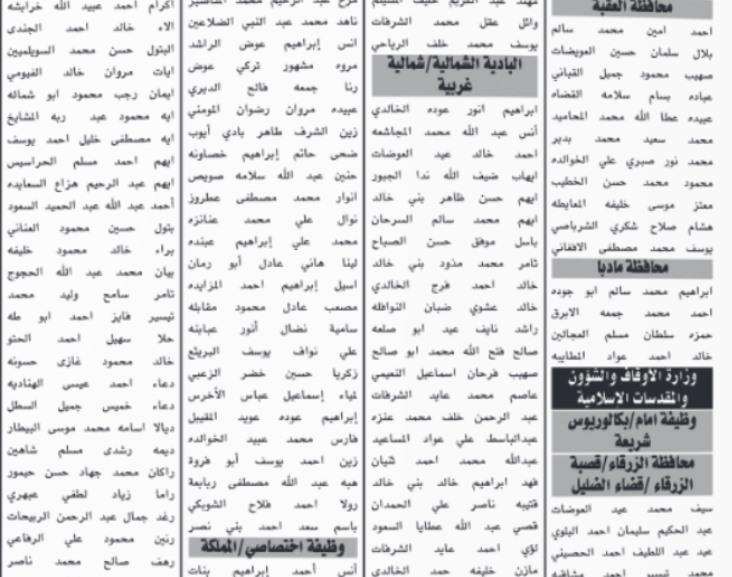 محافظة العقبة
احمد امين محمد سالم
بلال سلمان حسين العويضات
صهيب محمود جميل القباني
عباده بسام سلامه القضاه
عبيده عطا الله محمد المحاميد
محمد سعيد محمد بدير
محمد نور صبري علي الخوالده
محمود محمد حسن الخطيب
معتز موسى خليفه المعايطه
هشام صلاح شكري الشرباصي
يوسف محمد مصطفى الافغاني
محافظة مادبا
ابراهيم محمد سالم ابو جوده
احمد محمد جمعه الابرق
حمزه سلطان مسلم العجالين
خالد احمد عواد المطايبه
وزارة الاوقاف والشؤون
والمقدسات الاسلامية
وظيفة امام/بكالوريوس
شريعة
محافظة الزرقاء/قصبة
الزرقاء /قضاء الضليل
سيف محمد عيد العوضات
عبد الحكيم سليمان احمد البلوي
عبد عبد اللطيف احمد الحصيني
محمد تيسير احمد مشاقبه
وائل عقل محمد الشرفات
يوسف محمد خلف الرياحي
البادية الشمالية/شمالية
غربية
ابراهيم انور عوده الخالدي
أنس عبد الله محمد المجاشعه
احمد خالد عيد العوضات
ايهاب ضيف الله ندا الجبور
ايهم حسن ظاهر بني خالد
ايهم محمد سالم السرحان
باسل موفق حسن الصباح
ثامر محمد مذود بني خالد
خالد احمد فرج الخالدي
خالد عشوي ضبان النوافله
راشد نايف عيد ابو صلعه
صالح فتح الله محمد ابو صالح
صهيب فرحان اسماعيل النعيمي
عاصم محمد عايد الشرفات
عبد الرحمن خلف محمد عنزه
عبدالباسط علي عواد المساعيد
عبدالله محمد احمد شيان
فهد ابراهيم خالد بني خالد
قتيبه ناصر علي الحمدان
قصي عبد الله عطايا السعود
لؤي احمد عايد الشرفات
مازن خليفه حمد الخالدي
ناهد محمد عبد النبي الضلاعين
انس إبراهيم عوض الراشد
مروه مشهور تركي عوض
رنا جمعه فالح الديري
عبيده مروان رضوان المومني
زين الشرف طاهر بادي أيوب
ضحى حاتم إبراهيم خصاونه
حنين عبد الله سلامه صويص
انوار محمد مصطفى عطروز
نوال علي محمد عنانزه
محمد علي إبراهيم عبنده
لينا هاني عادل أبو رمان
اسيل إبراهيم احمد المزايده
مصعب عادل محمود مقابله
سامية نضال أنور عبابنه
علي نواف يوسف البريثع
زكريا حسين خضر الزعبي
لمياء إسماعيل عباس الأخرس
إبراهيم عوده عويد المقيبل
فارس محمد عبيد الخوالده
زين احمد يوسف أبو فروة
هبه عبد الله مصطفى ربابعة
رولا احمد فلاح الشوبكي
باسم سعد احمد بني نصر
وظيفة اختصاصي/المملكة
أنس أحمد إبراهيم بنات
اكرام احمد عبيد الله خرابشه
الاء خالد احمد الجندي
البتول حسن محمد السويلميين
ايات مروان خالد الفيومي
ايمان رجب محمود ابو شماله
ايه محمود عبد ربه المشايخ
ايه مصطفى خليل احمد يوسف
ايهم احمد مسلم الحراسيس
ايهم عبد الرحيم هزاع السعايده
أحمد عبد الله عبد الحميد السعود
بتول حسين محمود العناني
براء خالد محمود خليفه
بيان محمد عبد الله الحجوج
تامر سامح وليد محمد
تيسير فايز احمد ابو طه
حلا سهيل احمد الحتو
خالد محمود غازى حسونه
دعاء احمد عيسى الهناديه
دعاء خميس جميل السطل
ديالا اسامه محمد موسى البيطار
ديمه رشدى مسلم شاهين
راكان محمد جهاد حسن حيمور
راما زياد لطفي عبهري
رغد جمال عبد الرحمن الربيحات
رنين محمود علي الرفاعي
رهف صالح محمد ناصر